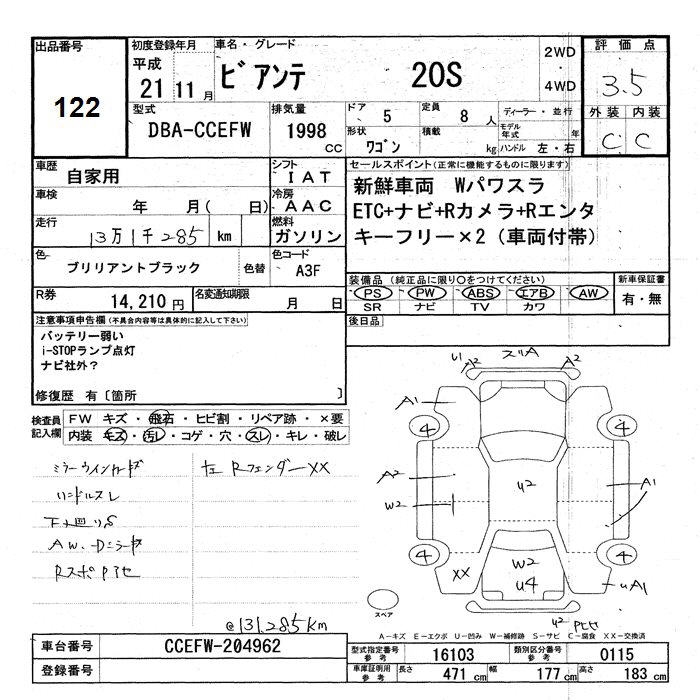 出品番号 初度登録年月 車名・グレード 2WD ・ 4WD 評価点
122 平成 21 11月 ビアンテ 20S 3.5
型式 排気量 ドア 5 定員 8人 ディーラー・並行 外装 内装
DBA-CCEFW 1998 CC 形状 ワゴン 積載 kg モデル年式 年 ハンドル 左・右 C C
車歴 自家用 シフト IAT セールスポイント(正常に機能するものに限ります)
車検 年 月( 日) 冷房 AAC 新鮮車両 Wパワスラ
走行 13万1千285 km 燃料 ガソリン ETC+ナビ+Rカメラ+Rエンタ
キーフリー×2(車両付帯)
色 ブリリアントブラック 色替 色コード A3F
装備品(純正品に限り○をつけてください) 新車保証書
PS PW ABS エアB AW 有・無
SR ナビ TV カワ
R券 14,210円 名変通知期限 月 日
後日品
注意事項申告欄(不具合内容等は具体的に記入して下さい)
バッテリー弱い
i-STOPランプ点灯
ナビ社外?
修復歴 有〔箇所 〕
検査員記入欄 FW キズ・飛石・ヒビ割・リペア跡・×要
内装 キズ・汚レ・コゲ・穴・スレ・キレ・破レ
ミラーウインカーキズ 左Rフェンダー××
ハンドルスレ
下廻りS
AW.Dミラーキズ
@131,285km
U1 A2 スリA A2
A1 4 4
A2 U2 A1
W2
4 W2 4
XX U4 uA1
スペア
U2
A-キズ E-エクボ U-凹み W-補修跡 S-サビ C-腐食 XX-交換済
車台番号 CCEFW-204962 型式指定番号 参考 16103 類別区分番号 参考 0115
登録番号 車庫証明用 参考 長さ 471 cm 幅 177 cm 高さ 183 cm